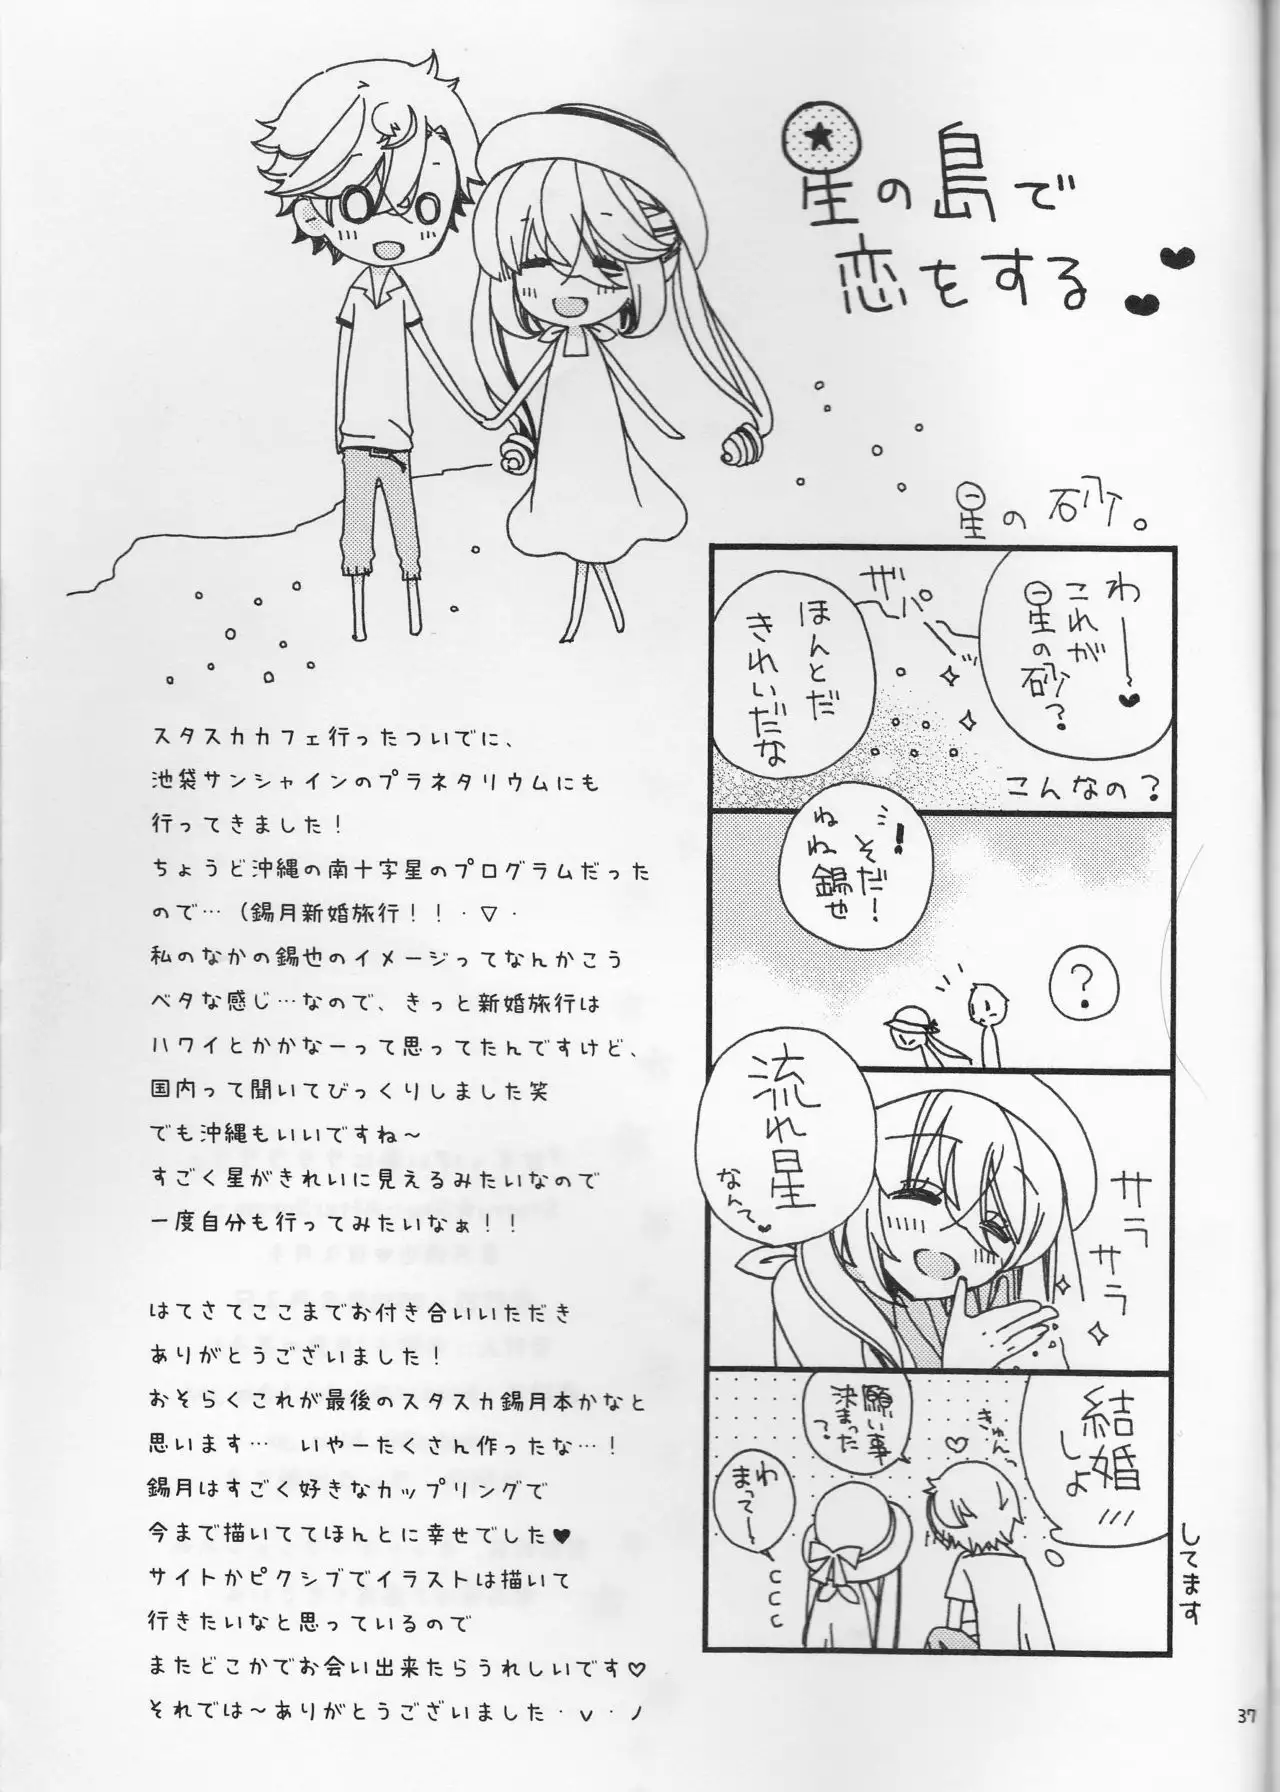 星の島で
恋をする
星の砂。
わーー♥
これが
星の砂?
ザパーン
ほんとだ
きれいだな
こんなの?
!そだ!
ねね錫也
?
流れ星
なんて♥
サラ
サラ
結婚
しよ
してます
きゅん
願い事
決まった
?
わ
まってー
CCC
スタスカカフェ行ったついでに、
池袋サンシャインのプラネタリウムにも
行ってきました!
ちょうど沖縄の南十字星のプログラムだった
ので…(錫月新婚旅行!!・▽・
私のなかの錫也のイメージってなんかこう
ベタな感じ…なので、きっと新婚旅行は
ハワイとかかなーって思ってたんですけど、
国内って聞いてびっくりしました笑
でも沖縄もいいですね~
すごく星がきれいに見えるみたいなので
一度自分も行ってみたいなぁ!!
はてさてここまでお付き合いいただき
ありがとうございました!
おそらくこれが最後のスタスカ錫月本かなと
思います… いやーたくさん作ったな…!
錫月はすごく好きなカップリングで
今まで描いててほんとに幸せでした♥
サイトかピクシブでイラストは描いて
行きたいなと思っているので
またどこかでお会い出来たらうれしいです♡
それでは~ありがとうございました・v・ノ
37